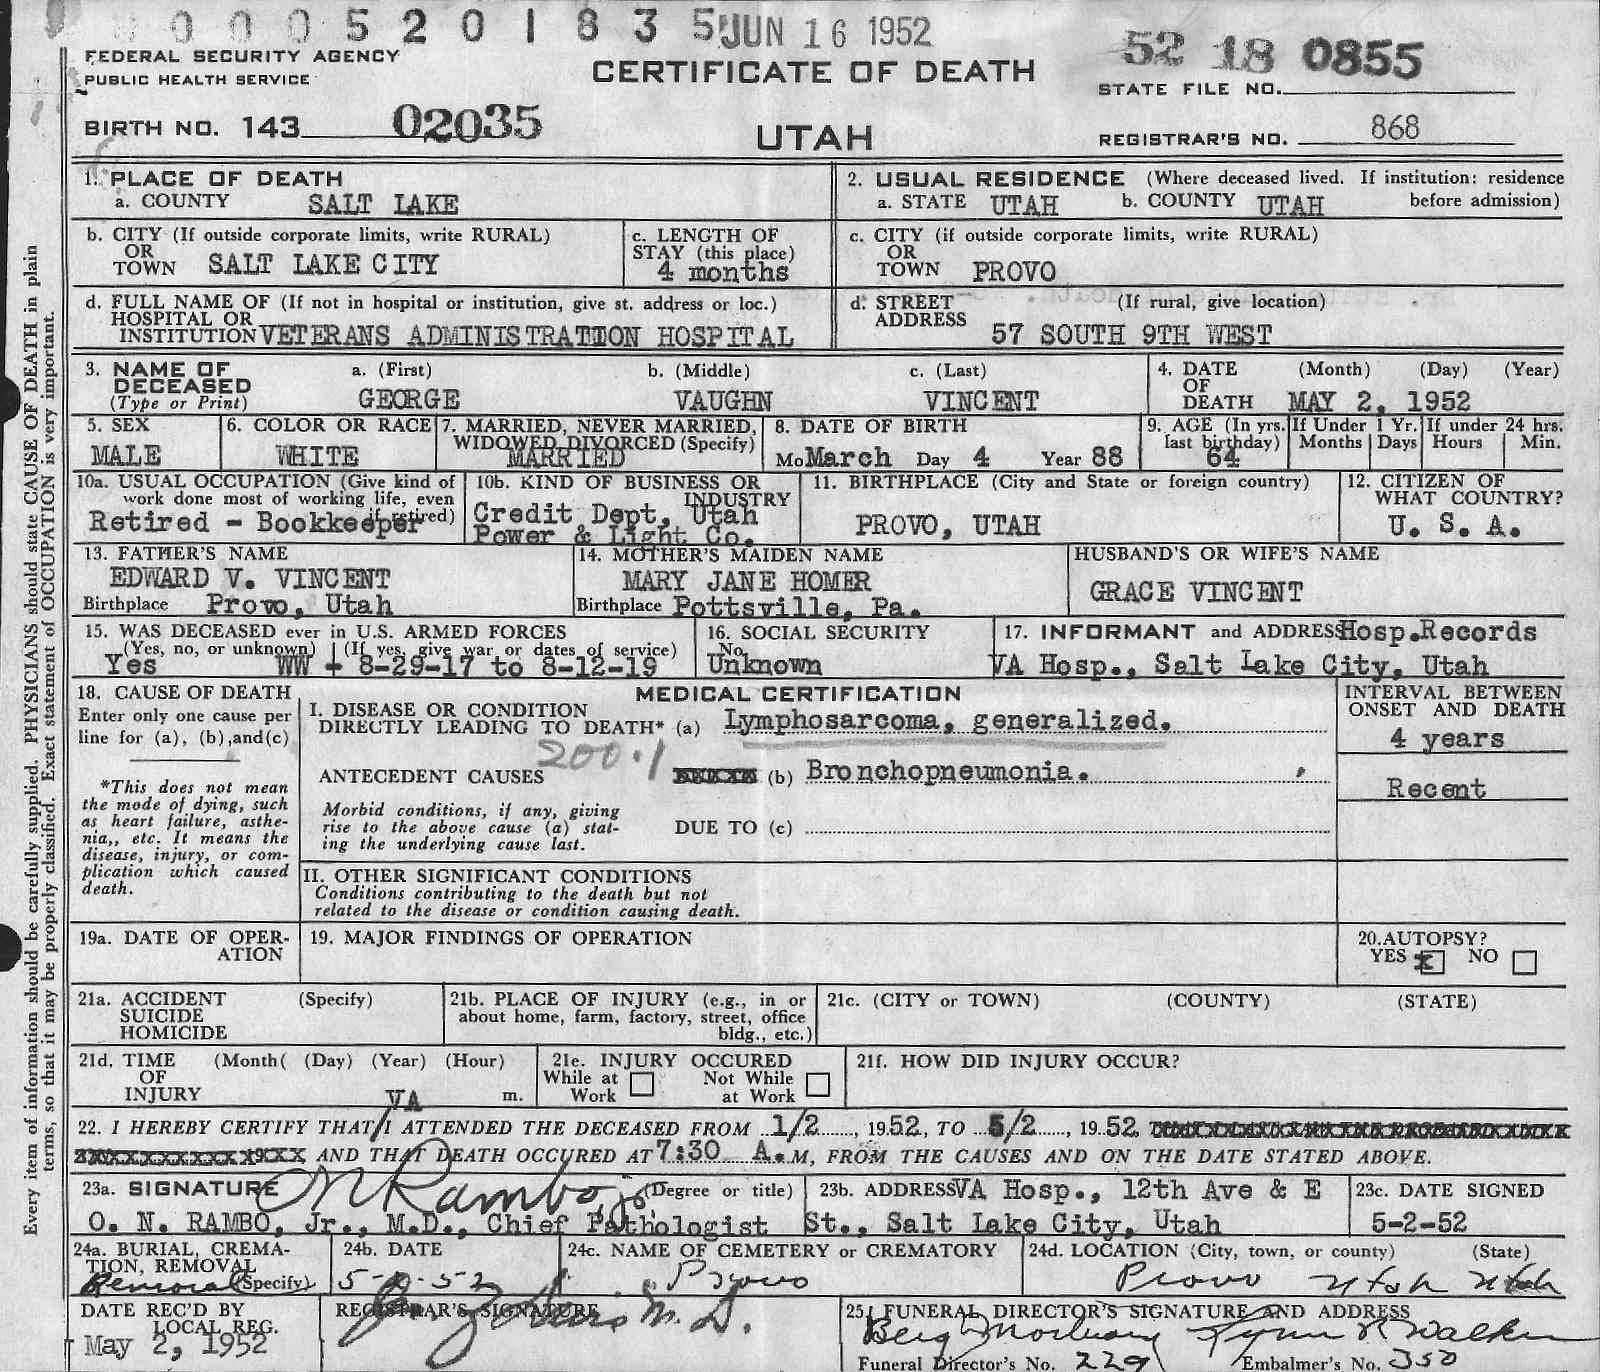 0 0 0 5 2 0 1 8 3 5 JUN 16 1952
52 18 0855
FEDERAL SECURITY AGENCY
PUBLIC HEALTH SERVICE
CERTIFICATE OF DEATH
STATE FILE NO.
BIRTH NO. 143 02035
UTAH
REGISTRAR'S NO. 868
1. PLACE OF DEATH
a. COUNTY SALT LAKE
2. USUAL RESIDENCE (Where deceased lived. If institution: residence before admission)
a. STATE UTAH b. COUNTY UTAH
b. CITY (If outside corporate limits, write RURAL)
OR
TOWN SALT LAKE CITY
c. LENGTH OF
STAY (this place)
4 months
c. CITY (if outside corporate limits, write RURAL)
OR
TOWN PROVO
d. FULL NAME OF (If not in hospital or institution, give st. address or loc.)
HOSPITAL OR
INSTITUTION VETERANS ADMINISTRATION HOSPITAL
d. STREET (If rural, give location)
ADDRESS 57 SOUTH 9TH WEST
3. NAME OF a. (First) b. (Middle) c. (Last)
DECEASED
(Type or Print) GEORGE VAUGHN VINCENT
4. DATE (Month) (Day) (Year)
OF
DEATH MAY 2, 1952
5. SEX
MALE
6. COLOR OR RACE
WHITE
7. MARRIED, NEVER MARRIED,
WIDOWED DIVORCED (Specify)
MARRIED
8. DATE OF BIRTH
Mo March Day 4 Year 88
9. AGE (In yrs. last birthday)
64
If Under 1 Yr.
Months Days
If under 24 hrs.
Hours Min.
10a. USUAL OCCUPATION (Give kind of
work done most of working life, even
if retired)
Retired - Bookkeeper
10b. KIND OF BUSINESS OR
INDUSTRY
Credit Dept, Utah
Power & Light Co.
11. BIRTHPLACE (City and State or foreign country)
PROVO, UTAH
12. CITIZEN OF
WHAT COUNTRY?
U. S. A.
13. FATHER'S NAME
EDWARD V. VINCENT
Birthplace Provo, Utah
14. MOTHER'S MAIDEN NAME
MARY JANE HOMER
Birthplace Pottsville, Pa.
HUSBAND'S OR WIFE'S NAME
GRACE VINCENT
15. WAS DECEASED ever in U.S. ARMED FORCES
(Yes, no, or unknown) (If yes, give war or dates of service)
Yes WW 1 8-29-17 to 8-12-19
16. SOCIAL SECURITY
No.
Unknown
17. INFORMANT and ADDRESS Hosp.Records
VA Hosp., Salt Lake City, Utah
18. CAUSE OF DEATH
Enter only one cause per
line for (a), (b),and(c)
*This does not mean
the mode of dying, such
as heart failure, asthe-
nia,, etc. It means the
disease, injury, or com-
plication which caused
death.
MEDICAL CERTIFICATION
I. DISEASE OR CONDITION
DIRECTLY LEADING TO DEATH* (a) Lymphosarcoma, generalized.
200.1
ANTECEDENT CAUSES (b) Bronchopneumonia.
Morbid conditions, if any, giving
rise to the above cause (a) stat-
ing the underlying cause last.
DUE TO (c)
INTERVAL BETWEEN
ONSET AND DEATH
4 years
Recent
II. OTHER SIGNIFICANT CONDITIONS
Conditions contributing to the death but not
related to the disease or condition causing death.
19a. DATE OF OPER-
ATION
19. MAJOR FINDINGS OF OPERATION
20. AUTOPSY?
YES x NO
21a. ACCIDENT (Specify)
SUICIDE
HOMICIDE
21b. PLACE OF INJURY (e.g., in or
about home, farm, factory, street, office
bldg., etc.)
21c. (CITY or TOWN) (COUNTY) (STATE)
21d. TIME (Month( (Day) (Year) (Hour)
OF
INJURY m.
21e. INJURY OCCURED
While at Work Not While at Work
21f. HOW DID INJURY OCCUR?
VA
22. I HEREBY CERTIFY THAT/I ATTENDED THE DECEASED FROM 1/2, 1952, TO 5/2, 1952
AND THAT DEATH OCCURED AT 7:30 A.M, FROM THE CAUSES AND ON THE DATE STATED ABOVE.
23a. SIGNATURE O N Rambo, Jr. (Degree or title)
O. N. RAMBO, Jr., M.D., Chief Pathologist
23b. ADDRESS VA Hosp., 12th Ave & E
St., Salt Lake City, Utah
23c. DATE SIGNED
5-2-52
24a. BURIAL, CREMA-
TION, REMOVAL
Removal (Specify)
24b. DATE
24c. NAME OF CEMETERY or CREMATORY
Provo
24d. LOCATION (City, town, or county) (State)
Provo Utah Utah
DATE REC'D BY
LOCAL REG.
May 2, 1952
REGISTRAR'S SIGNATURE
M.D.
25. FUNERAL DIRECTOR'S SIGNATURE AND ADDRESS
Berg Mortuary Lynn R Walker
Funeral Director's No. 229 Embalmer's No. 350
Every item of information should be carefully supplied. PHYSICIANS should state CAUSE OF DEATH in plain
terms, so that it may be properly classified. Exact statement of OCCUPATION is very important.